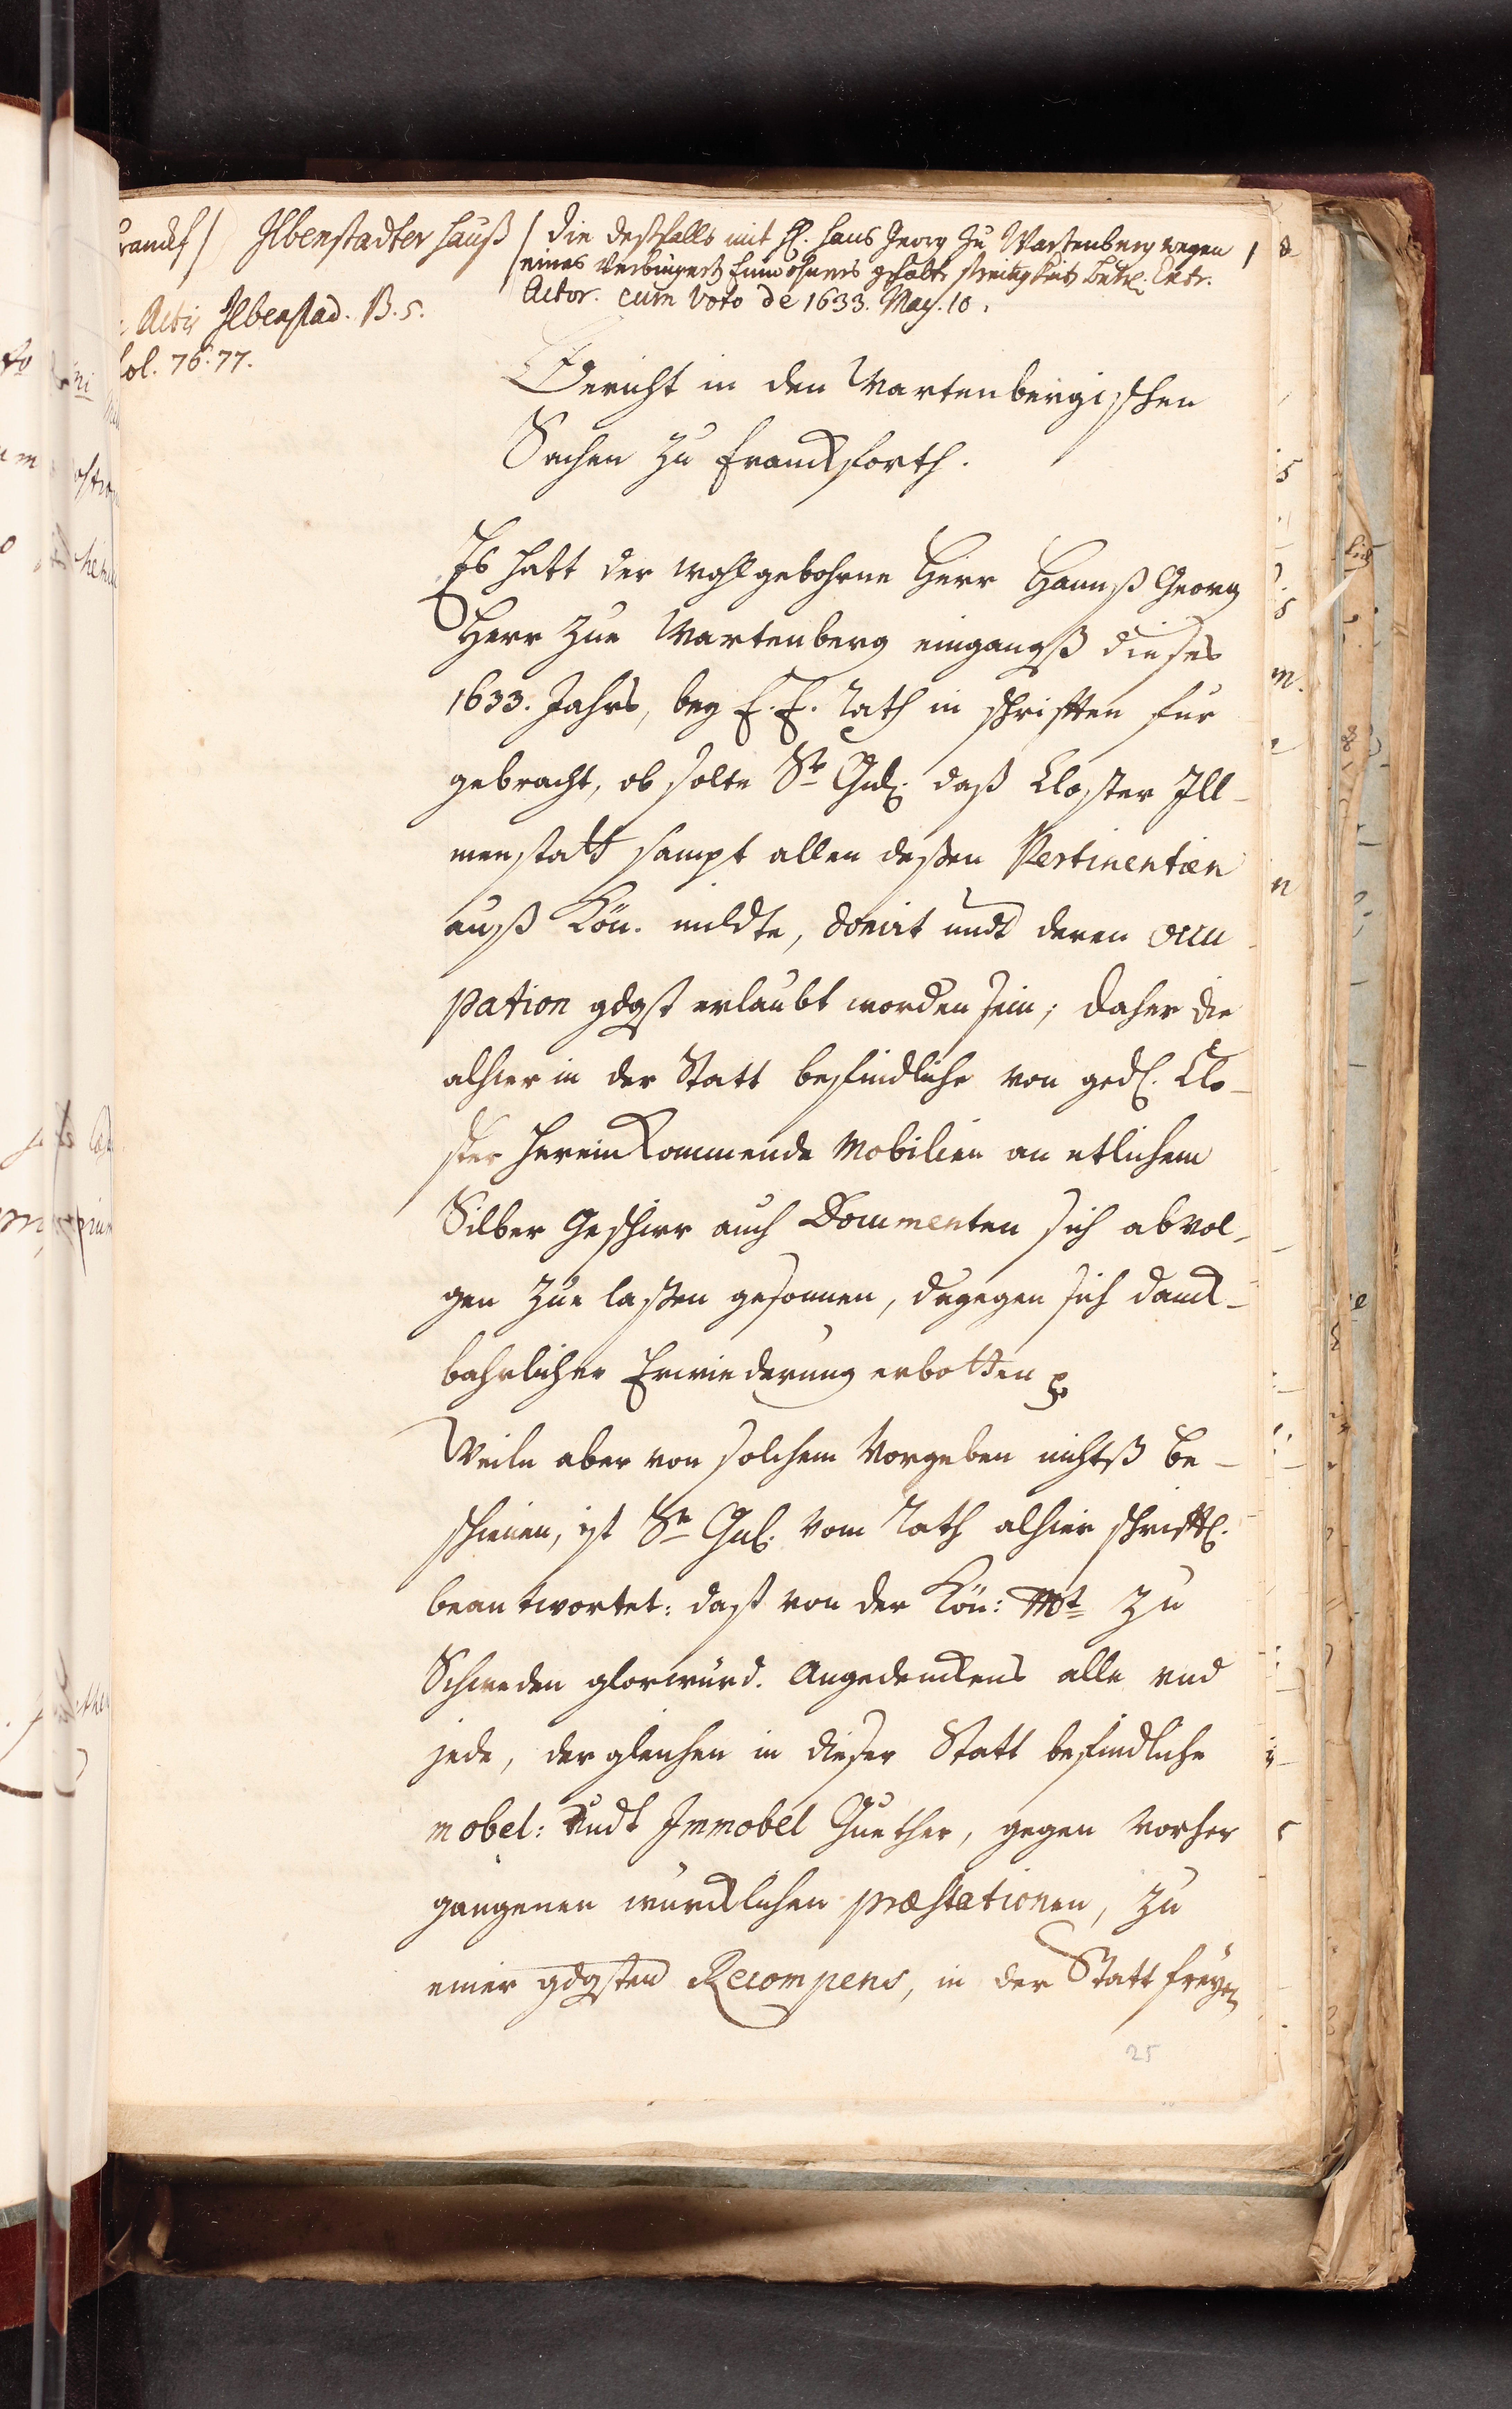 franckf / Ilbenstadter Hauß / die deßfalls mit H. Hans Georg zu Wartenberg wegen /
eines Einwohners gehabte streitigkeit betr. Extr.
Actor. cum Voto de 1633. May. 10.
Actis Ilbenstad. B. 5.
fol. 76. 77.
Bericht in den Wartenbergischen
Sachen zu Franckforth.
Es hatt der wohlgebohrne Herr Hannß Georg
Herr zue Wartenberg eingangß dießes
1633. Jahrs, bey E. E. Rath in schrifften für
gebracht, ob solte Sr Gnd. daß Closter Ill-
menstatt sampt allen deßen Pertinentien
auß Kön. mildte, donirt undt deren occu
pation gdgst erlaubt worden sein; daher die
alhier in der Statt befindliche von ged. Clo-
ster hereinkommende Mobilien an etlichem
Silber Geschirr auch Documenten sich abvol-
gen zue laßen gesonnen, dagegen sich danck-
bahrlicher Erwiederung erbotten
Weiln aber von solchem Vorgeben nichtß be-
schienen, ist Sr Gnd. vom Rath alhier schrifftl.
beantwortet: daß von der Kön: Mt zu
Schweden glorwürd. Angedenckens alle und
jede, dergleichen in dießer Statt befindliche
mobel: undt Immobel Guether, gegen vorher
gangenen würcklichen præstationen, zu
einer gdgsten Recompens, in der Statt freyen
25